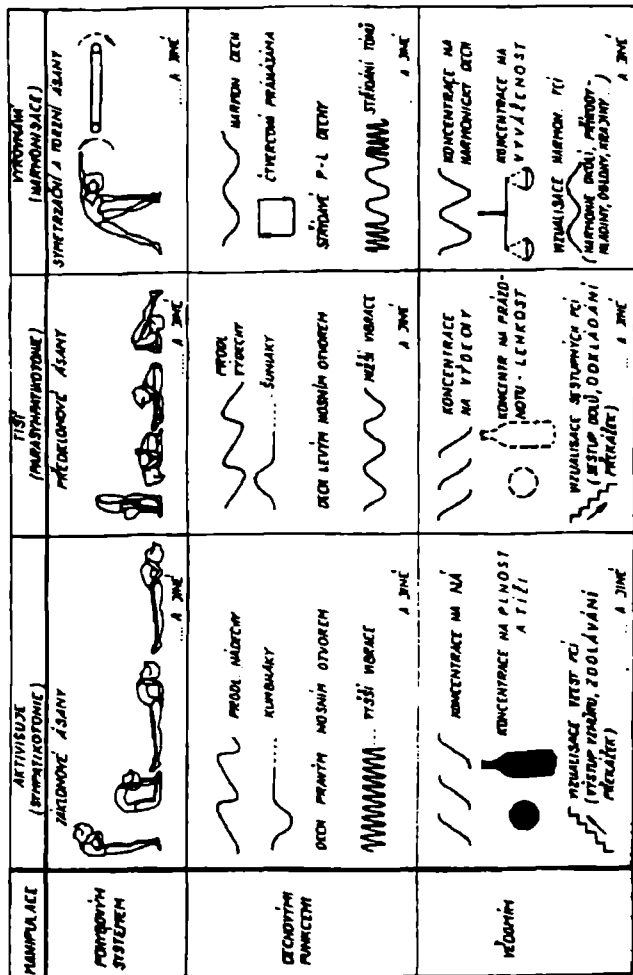 MANIPULACE
AKTIVISUJE
(SYMPATIKOTONIE)
TIŠÍ
(PARASYMPATIKOTONIE)
VYROVNÁVÁ
(HARMONISACE)
POHYBOVÝM
SYSTÉMEM
ZÁKLONOVÉ ÁSANY
..... A JINÉ
PŘEDKLONOVÉ ÁSANY
..... A JINÉ
SYMETRIZAČNÍ A TORZNÍ ÁSANY
..... A JINÉ
DECHOVÝMI
FUNKCEMI
PRODL NÁDECHY
KUMBHAKY
DECH PRAVÝM NOSNÍM OTVOREM
VYŠŠÍ VIBRACE
A JINÉ
PRODL
VÝDECHY
ŠUNJAKY
DECH LEVÝM NOSNÍM OTVOREM
NIŽŠÍ VIBRACE
A JINÉ
HARMON DECH
ČTVERCOVÁ PRÁNAJÁMA
STŘÍDAVÉ P-L DECHY
STŘÍDÁNÍ TÓNŮ
A JINÉ
VĚDOMÍM
KONCENTRACE NA NÁ
KONCENTRACE NA PLNOST
A TÍŽI
VIZUALISACE VZEST FCÍ
(VÝSTUP VZHŮRU, ZDOLÁVÁNÍ
PŘEKÁŽEK)
..... A JINÉ
KONCENTRACE
NA VÝDECHY
KONCENTR NA PRÁZD-
NOTU - LEHKOST
VIZUALISACE SESTUPNÝCH FCÍ
(SESTUP DOLŮ, ODKLÁDÁNÍ
PŘEKÁŽEK)
..... A JINÉ
KONCENTRACE NA
HARMONICKÝ DECH
KONCENTRACE NA
VYVÁŽENOST
VIZUALISACE HARMON. FCÍ
(HARMONIE OKOLÍ, PŘÍRODY-
HLADINY, OBLOHY, KRAJINY...)
A JINÉ